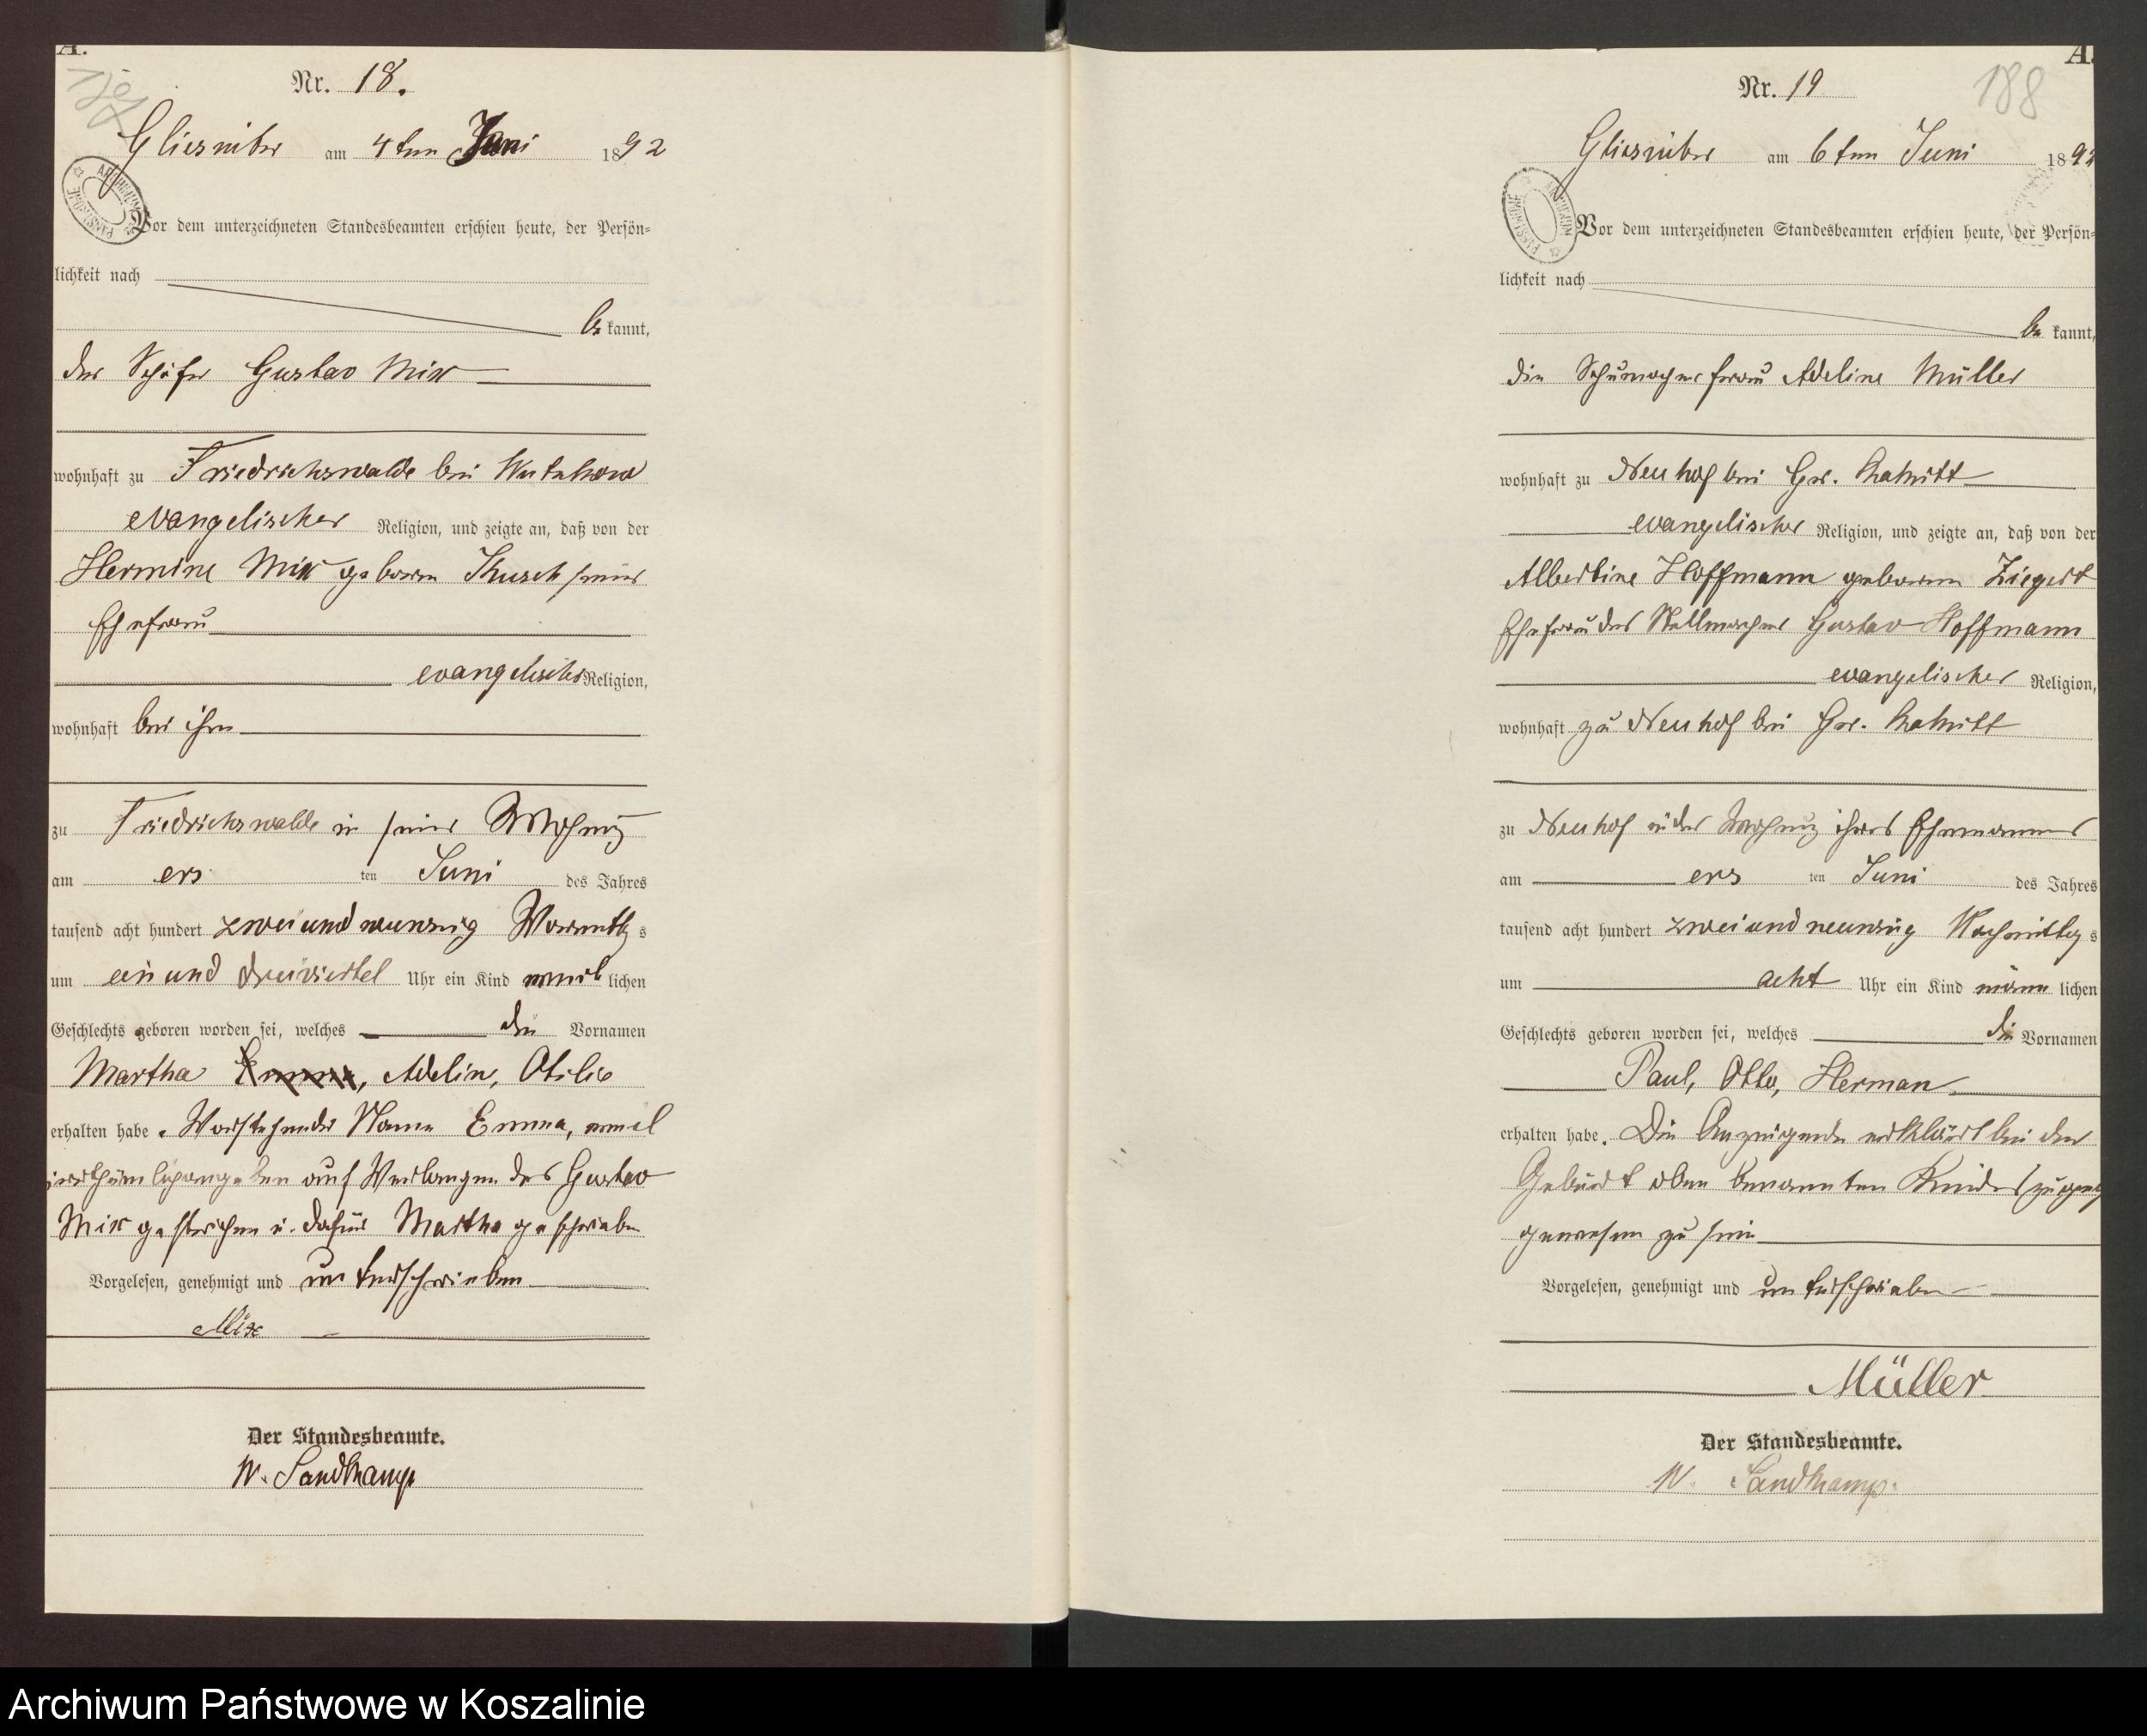 A.
Nr. 18.
Gliesnitz am 4ten Juni 1892
Vor dem unterzeichneten Standesbeamten erschien heute, der Persön-
lichkeit nach
be kannt,
der Schäfer Gustav Mix
wohnhaft zu Friedrichswalde bei Wutzkow
evangelischer Religion, und zeigte an, daß von der
Hermine Mix geboren Kusch seiner
Ehefrau
evangelischer Religion,
wohnhaft bei ihm
zu Friedrichswalde in seiner Wohnung
am ers ten Juni des Jahres
tausend acht hundert zwei und neunzig Vormittag s
um ein und dreiviertel Uhr ein Kind weib lichen
Geschlechts geboren worden sei, welches die Vornamen
Martha Emma, Adeline, Otilie
erhalten habe. Vorstehender Name Emma, weil
irrthümlich angegeben auf Verlangen des Gustav
Mix gestrichen u. dafür Martha geschrieben
Vorgelesen, genehmigt und unterschrieben
Mix
Der Standesbeamte.
W. Sandkamp
A.
188
Nr. 19
Gliesnitz am 6ten Juni 1892
Vor dem unterzeichneten Standesbeamten erschien heute, der Persön-
lichkeit nach
be kannt,
die Schumacherfrau Adeline Müller
wohnhaft zu Neuhof bei Gr.
evangelischer Religion, und zeigte an, daß von der
Albertine Hoffmann geborenen Ziegert
Ehefrau des Stellmacher Gustav Hoffmann
evangelischer Religion,
wohnhaft zu Neuhof bei Gr.
zu Neuhof in der Wohnung ihres Ehemannes
am ers ten Juni des Jahres
tausend acht hundert zwei und neunzig Nachmittag s
um acht Uhr ein Kind männ lichen
Geschlechts geboren worden sei, welches die Vornamen
Paul, Otto, Herman
erhalten habe. Die Anzeigende erklärt bei der
Geburt oben benannten Kindes zugegen
gewesen zu sein
Vorgelesen, genehmigt und unterschrieben
Müller
Der Standesbeamte.
W. Sandkamp.
Archiwum Państwowe w Koszalinie